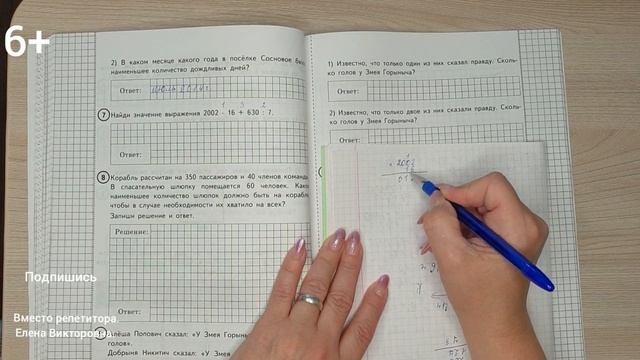 6+
2) В каком месяце какого года в посёлке Сосновое был
наименьшее количество дождливых дней?
Ответ:
7 Найди значение выражения 2002 · 16 + 630 : 7.
Ответ:
8 Корабль рассчитан на 350 пассажиров и 40 членов команды
В спасательную шлюпку помещается 60 человек. Како
наименьшее количество шлюпок должно быть на корабл
чтобы в случае необходимости их хватило на всех?
Запиши решение и ответ.
Решение:
Ответ:
лёша Попович сказал: «У Змея Горын
голов».
Добрыня Никитич сказал: «У Змея
1) Известно, что только один из них сказал правду. Сколь-
ко голов у Змея Горыныча?
Ответ:
2) Известно, что только двое из них сказали правду. Сколь-
ко голов у Змея Горыныча?
Ответ:
2002
Подпишись
Вместо репетитора
Елена Викторовна